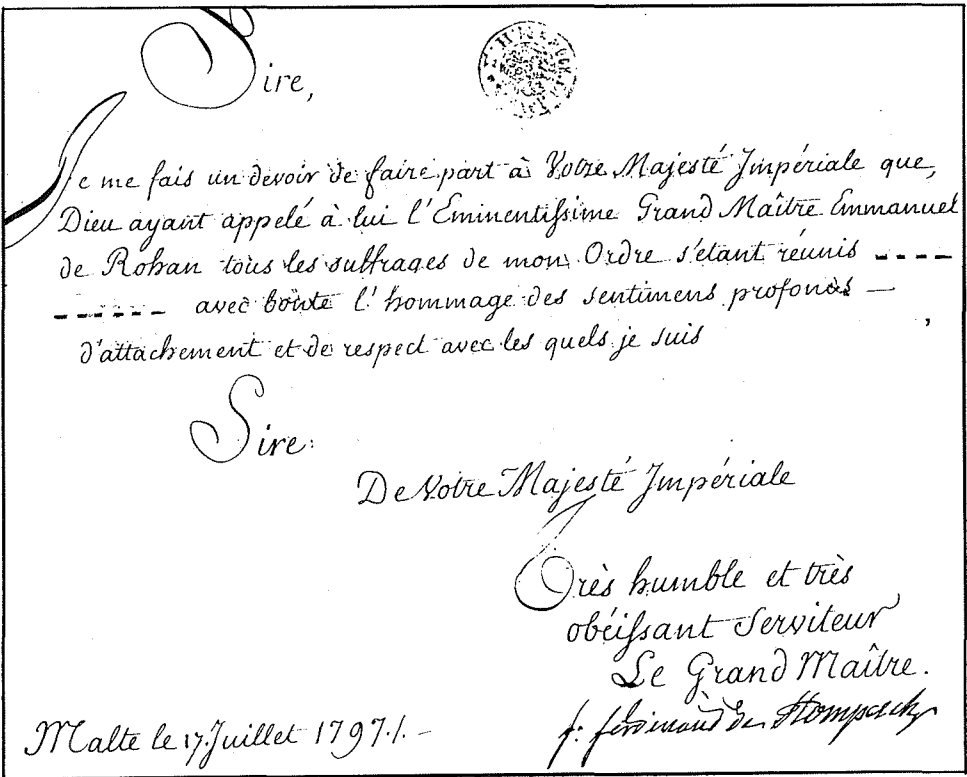 Sire,
Je me fais un devoir de faire part à Votre Majesté Impériale que,
Dieu ayant appelé à lui l'Eminentissime Grand Maître Emmanuel
de Rohan tous les suffrages de mon Ordre s'étant réunis ----
------ avec bonté l'hommage des sentimens profonds —
d'attachement et de respect avec les quels je suis
Sire:
De Votre Majesté Impériale
Très humble et très
obéissant Serviteur
Le Grand Maître.
f: ferdinand de Hompesch
Malte le 17. Juillet 1797./. -